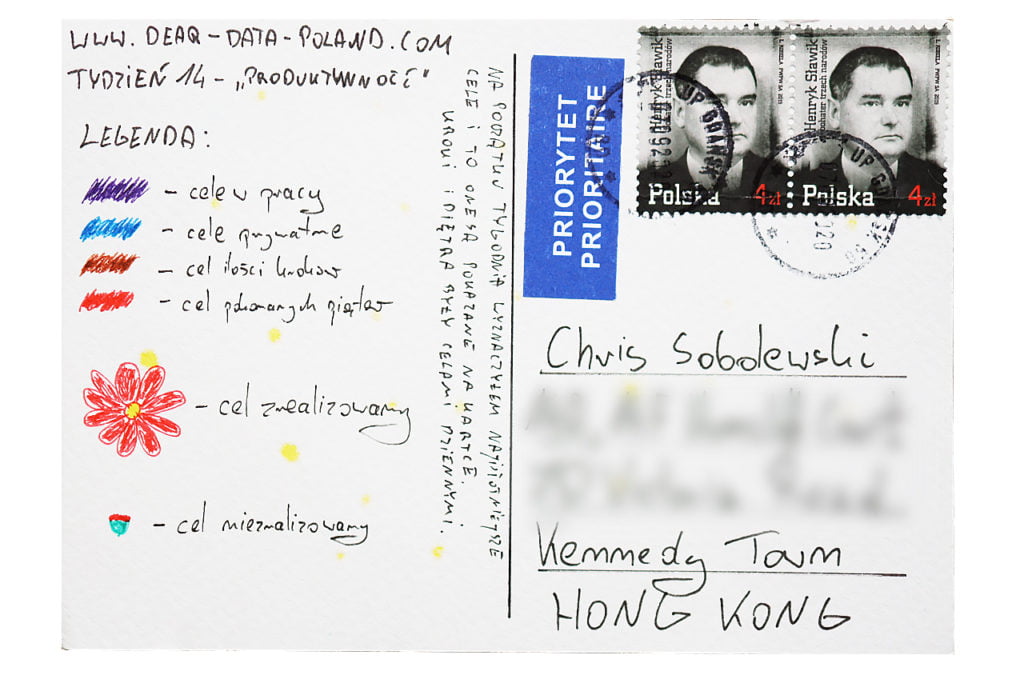 WWW. DEAR-DATA-POLAND.COM
TYDZIEŃ 14 - „PRODUKTYWNOŚĆ"
LEGENDA:
- cele w pracy
- cele prywatne
- cel ilości kroków
- cel pokonanych pięter
- cel zrealizowany
- cel niezrealizowany
NA POCZĄTKU TYGODNIA WYZNACZYŁEM NAJISTOTNIEJSZE
CELE I TO ONE SĄ POKAZANE NA KARTCE.
KROKI I PIĘTRA BYŁY CELAMI DZIENNYMI.
PRIORYTET
PRIORITAIRE
Henryk Sławik
bohater trzech narodów
Polska 4zł
Henryk Sławik
bohater trzech narodów
Polska 4zł
UP GDAŃSK
Chris Sobolewski
Kennedy Town
HONG KONG